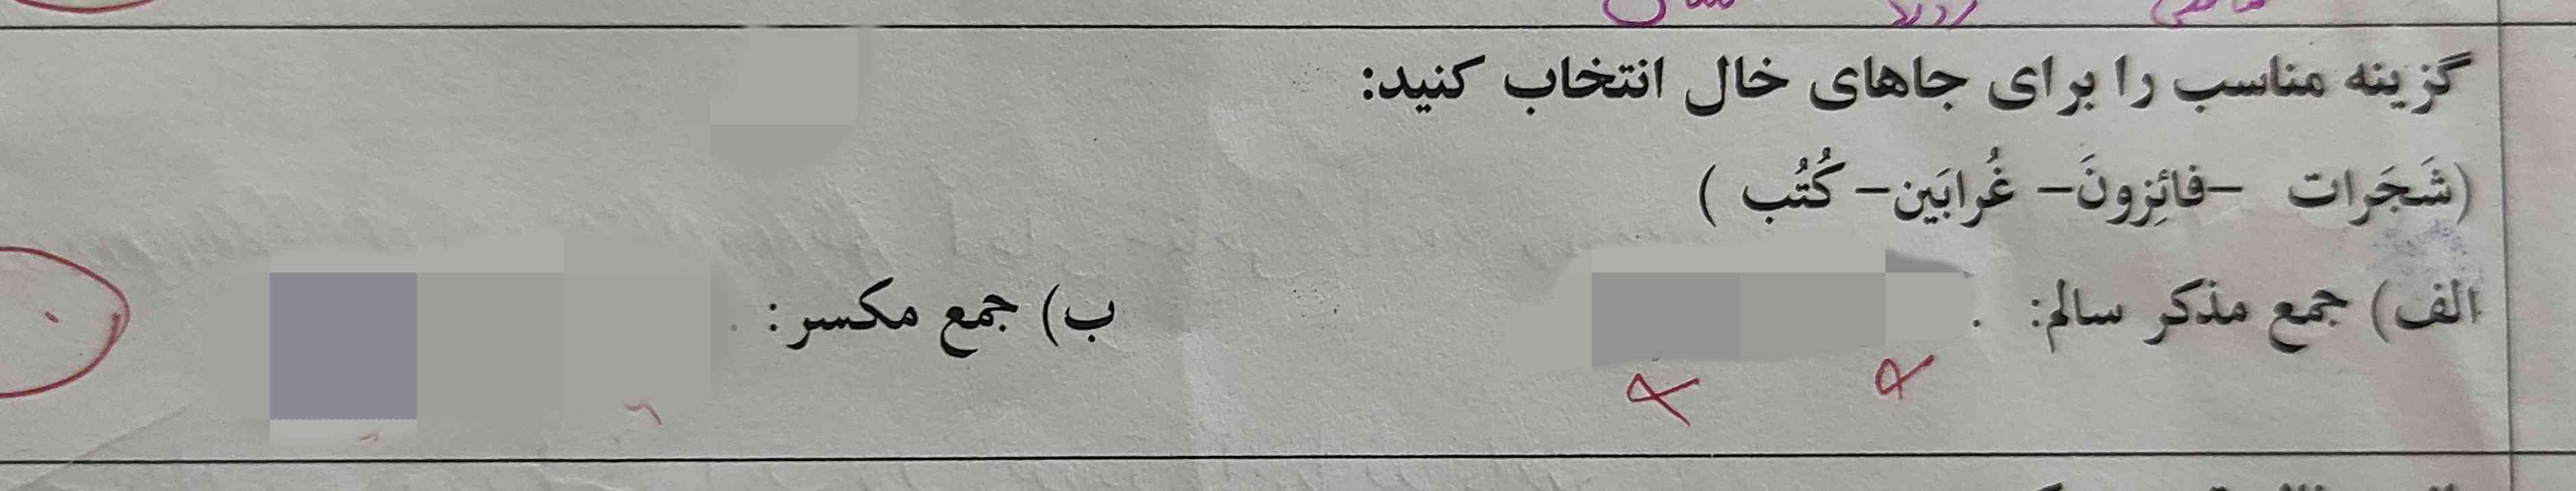 گزینه مناسب را برای جاهای خال انتخاب کنید:
(شَجَرات –فائِزونَ– غُرابَین– كُتُب )
الف) جمع مذکر سالم: .
ب) جمع مکسر: .